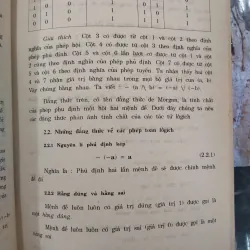 1
0
0
0
0
0
Giải thích : Cột 3 có được từ cột 1 và cột 2 theo định
nghĩa của phép hội. Cột 4 có được từ cột 3 theo định nghĩa của
phép phủ định. Cột 5 và cột 6 lần lượt có được từ cột 1 và cột
2 cũng theo định nghĩa của phép phủ định. Cột 7 có được từ cột
5 và cột 6 theo định nghĩa của phép tuyển. Ta nhận thấy hai cột
4 và 7 nhận giá trị bằng nhau trong mọi bộ giá trị của a, b.
Vậy chúng bằng nhau. Ta viết :
Đẳng thức trên, có thể dùng thức de Morgan, là tính chất
của phép phủ định một hội hai mệnh đề. Dưới đây chúng ta nêu
các đẳng thức phản ánh tính chất của các tác tử lôgich
2.2. Những đẳng thức về các phép toán lôgich
2.2.1 Nguyên lí phủ định kép
— (—a) = a (2.2.1)
Nghĩa là : Phủ định hai lần mệnh đề sẽ được chính mệnh
đề đó
2.2.2 Hằng đúng và hằng sai
Mệnh đề luôn luôn có giá trị đúng (giá trị 1) được gọi là
hằng đúng.
Mệnh đề luôn luôn có giá trị sai (giá trị 0) được gọi là một